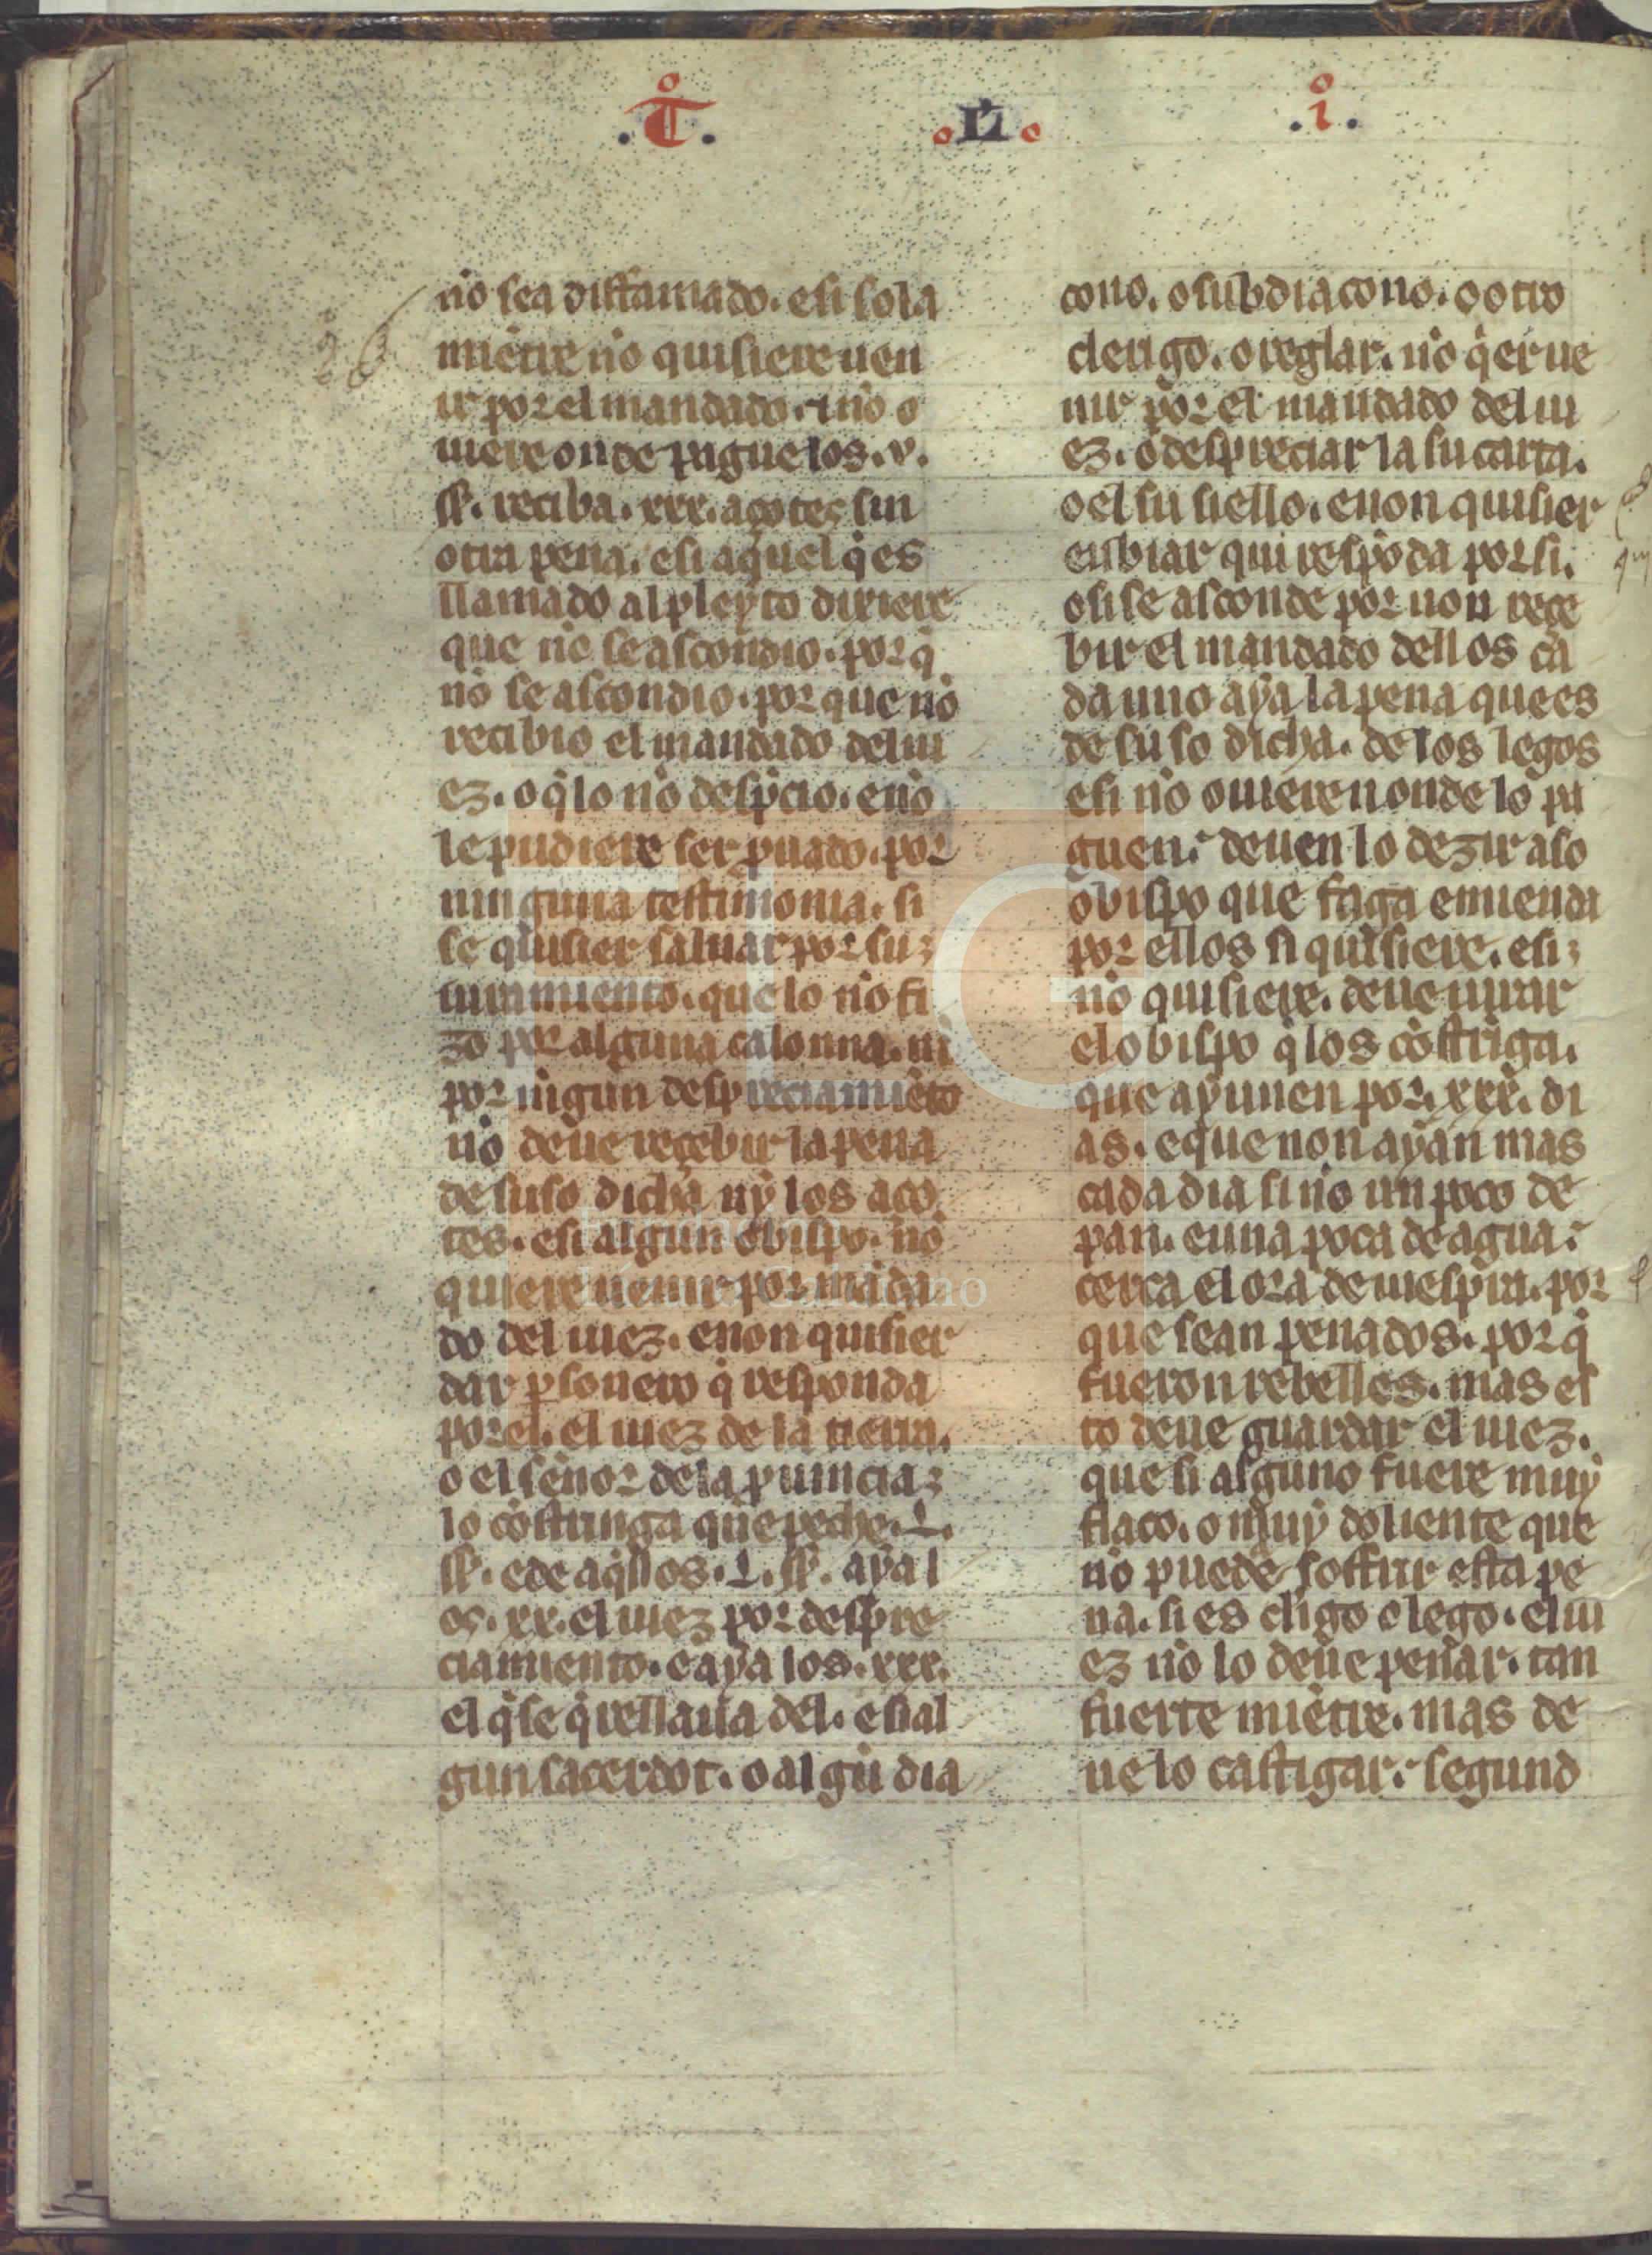 .T. .L. .i.
nõ sea diffamado. e si sola
miẽtre nõ quisiere uen
ir por el mandado. ⁊ nõ o
uiere onde pague los .v.
ss. reciba .xxx. açotes sin
otra pena. e si aquel q̃ es
llamado al pleyto dixiere
que nõ se ascondio. por q̃
nõ se ascondio. por que nõ
recibio el mandado del iu
ez. o q̃ lo nõ desp̃cio. e nõ
le pudiere ser puado. por
ninguna testimonia. si
se quisier saluar por su
iuramiento. que lo nõ fi
zo por alguna calonna. ni
por nigun despreciamiẽto
nõ deue reçebir la pena
de suso dicha ny los aço
tes. e si algun obispo. nõ
quiere uenir por mãda
do del iuez. e non quisier
dar p̱sonero q̃ responda
por el. el iuez de la tierra.
o el sẽnor de la puincia
lo cõstringa que peche .L.
ss. e de aq̃llos .L. ss. aya l
os .xx. el iuez por despre
ciamiento. e aya los .xxx.
el q̃ se q̃rellaua del. e si al
gun sacerdot. o algũ dia
cono. o subdiacono. o otro
clerigo. o reglar. nõ q̃er ue
nir por el mandado del iu
ez. o despreciar la su carta.
o el su siello. e non quisier
enbiar qui respõda por si.
o si se asconde por non reçe
bir el mandado dellos ca
da uno aya la pena que es
de suso dicha. de los legos
e si nõ ouieren onde lo pa
guen. deuen lo dezir a so
obispo que faga emienda
por ellos si quisiere. e si
nõ quisiere. deue iurar
el obispo q̃ los cõstriga.
que ayunen por .xxx. di
as. e que non ayan mas
cada dia si nõ un poco de
pan. e una poca de agua.
cerca el ora de uiespra. por
que sean penados. por q̃
fueron rebelles. mas es
to deue guardar el iuez.
que si alguno fuere muy
flaco. o muy doliente que
nõ puede soffrir esta pe
na. si es cligo o lego. el iu
ez nõ lo deue penar. tan
fuerte miẽtre. mas de
ue lo castigar. segund